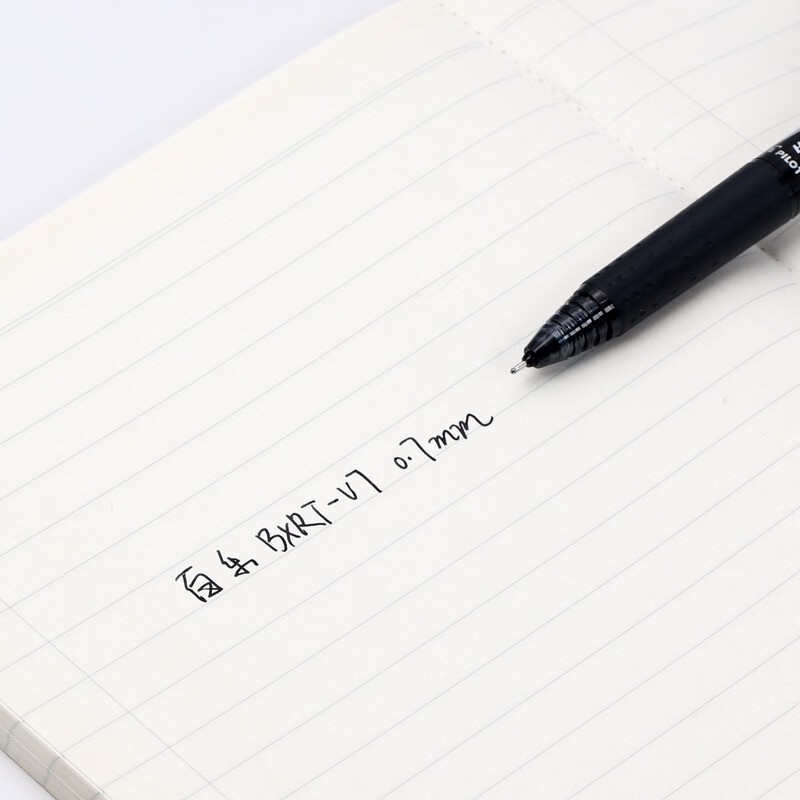 百乐 BXRT-V7 0.7mm
PILOT